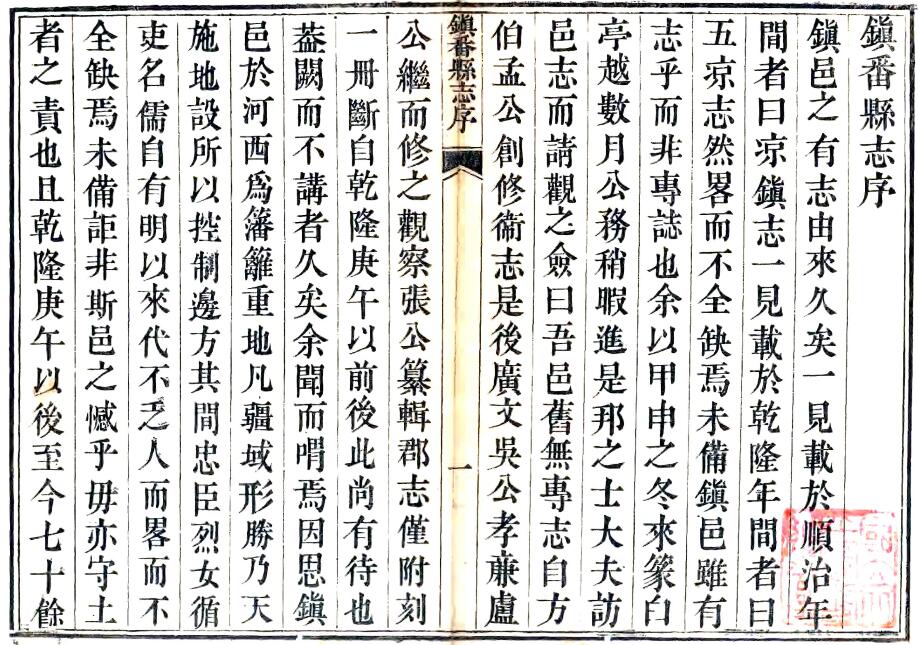 鎮番縣志序
鎮邑之有志由來久矣一見載於順治年
間者曰凉鎮志一見載於乾隆年間者曰
五凉志然畧而不全缺焉未備鎮邑雖有
志乎而非專誌也余以甲申之冬來篆白
亭越數月公務稍暇進是邦之士大夫訪
邑志而請觀之僉曰吾邑舊無專志自方
伯孟公創修衞志是後廣文吳公孝亷盧
鎮番縣志序
一
公繼而修之觀察張公纂輯郡志僅附刻
一冊斷自乾隆庚午以前後此尚有待也
葢闕而不講者久矣余聞而喟焉因思鎮
邑於河西爲籓籬重地凡疆域形勝乃天
施地設所以控制邊方其間忠臣烈女循
吏名儒自有明以來代不乏人而畧而不
全缺焉未備詎非斯邑之憾乎毋亦守土
者之責也且乾隆庚午以後至今七十餘